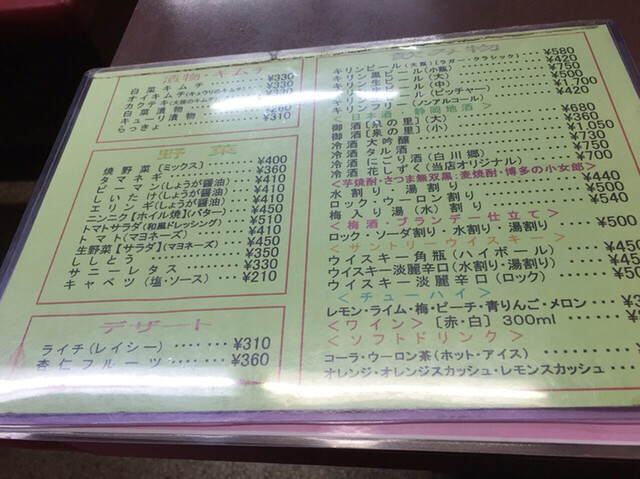 漬物・キムチ
白菜キムチ ¥330
オイキムチ(キュウリのキムチ) ¥330
カクテキ(大根のキムチ) ¥330
白菜漬物 ¥260
キューリ漬物 ¥310
らっきょ
野菜
焼野菜【ミックス】 ¥400
タマネギ ¥360
ピーマン(しょうが醤油) ¥410
しいたけ(しょうが醤油) ¥410
エリンギ(しょうが醤油) ¥410
ニンニク【ホイル焼】(バター) ¥450
トマトサラダ(和風ドレッシング) ¥510
トマト(マヨネーズ) ¥410
生野菜【サラダ】(マヨネーズ) ¥450
ししとう ¥350
サニーレタス ¥330
キャベツ(塩・ソース) ¥210
デザート
ライチ(レイシー) ¥310
杏仁フルーツ ¥360
飲み物
キリンビール(大瓶)(ラガー・クラシック) ¥580
キリンビール(小瓶) ¥420
キリン黒ビール(大) ¥750
キリン生ビール(中) ¥500
キリン生ビール(ピッチャー) ¥1,700
キリンフリー(ノンアルコール) ¥420
<日本酒 静岡地酒>
御酒【泉の里】(大) ¥680
御酒【泉の里】(小) ¥360
冷酒 大吟醸 ¥1,050
冷酒 タル酒 ¥730
冷酒 にごり酒(白川郷) ¥750
冷酒 花しずく(当店オリジナル) ¥700
<芋焼酎・さつま無双黒:麦焼酎・博多の小女郎>
水割り 湯割り ¥440
ロック・ウーロン割り ¥500
梅入り湯(水)割り ¥540
<梅酒・ブランデー仕立て>
ロック・ソーダ割り・水割り・湯割り ¥500
<サントリーウイスキー>
ウイスキー角瓶(ハイボール)
ウイスキー淡麗辛口(水割り・湯割り)
ウイスキー淡麗辛口(ロック)
<チューハイ>
レモン・ライム・梅・ピーチ・青りんご・メロン
<ワイン>[赤・白]300ml
<ソフトドリンク>
コーラ・ウーロン茶(ホット・アイス)
オレンジ・オレンジスカッシュ・レモンスカッシュ